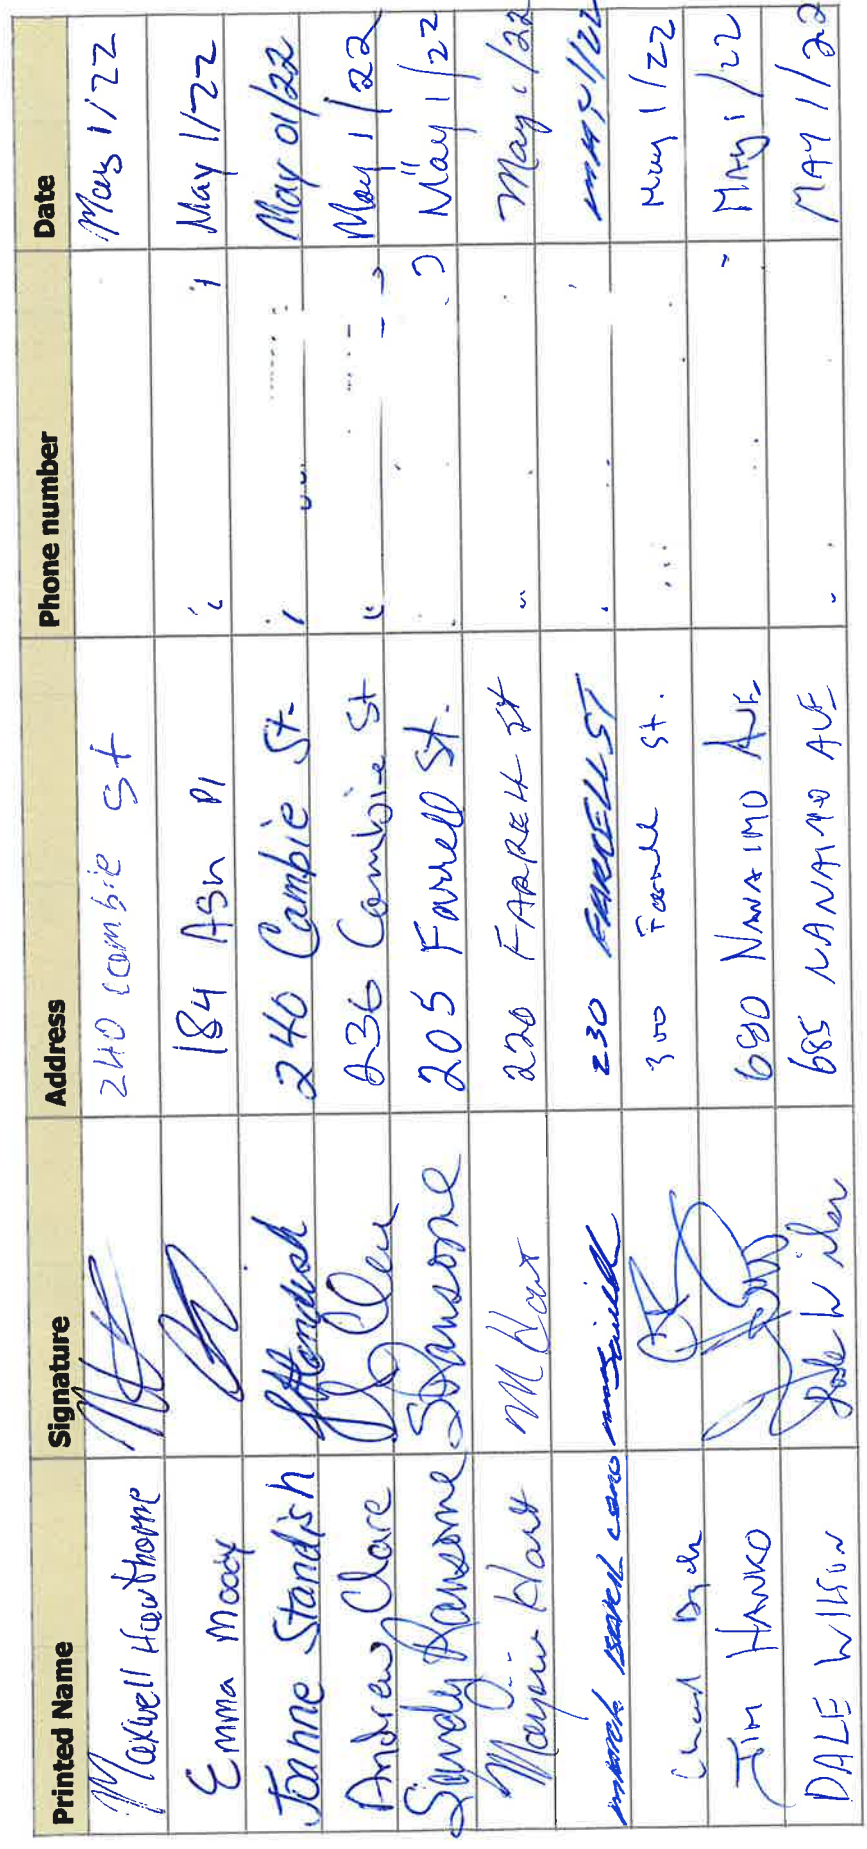 Printed Name Signature Address Phone number Date
Maxwell Hawthorne 240 Cambie St May 1/22
Emma Moody 184 Ash Pl May 1/22
Joanne Standish JStandish 240 Cambie St. May 01/22
Andrew Clare 236 Cambie St May 1/22
Sandy Ransome SRansome 205 Farrell St. May 1/22
Hart M Hart 220 FARRELL St May 1/22
230 FARRELL ST MAY 1/22
300 Farrell St. May 1/22
JIM HANKO 680 NANAIMO AVE MAY 1/22
DALE WILSON Dale Wilson 685 NANAIMO AVE MAY 1/22